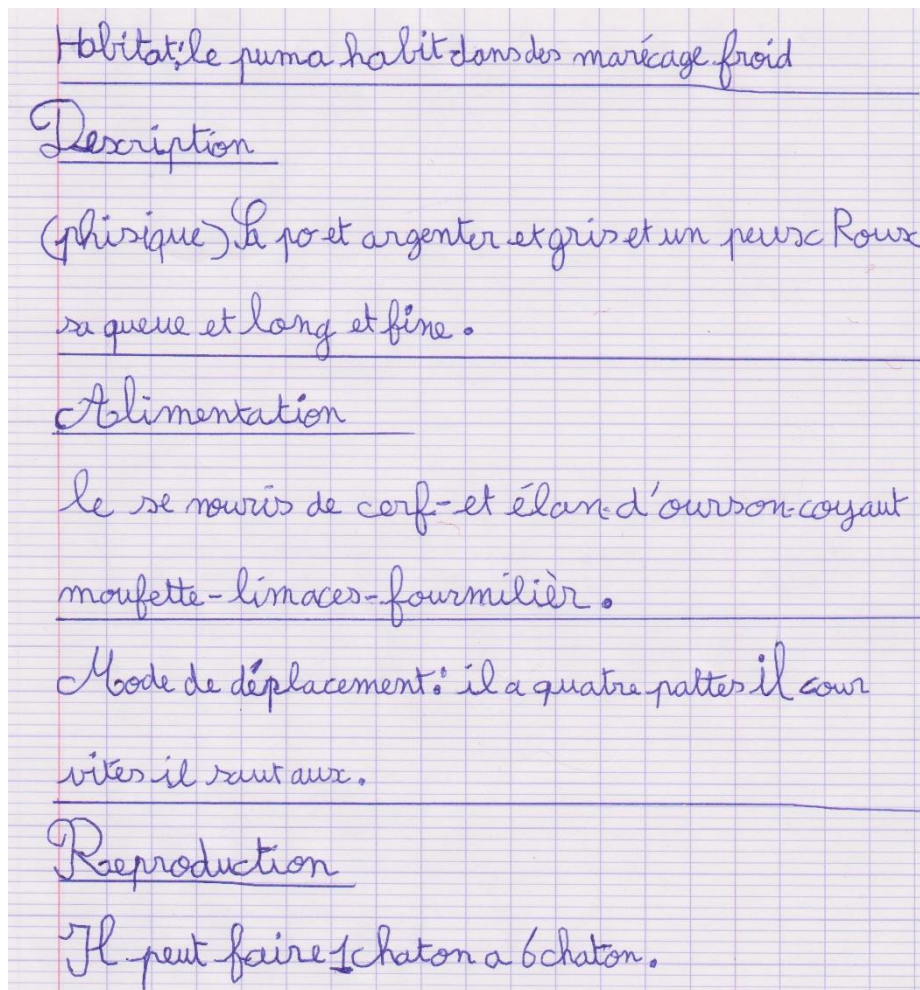 Habitat: le puma habit dans des marécage froid
Description
(phisique) Sa po et argenter et gris et un peux Roux
sa queue et long et fine.
Alimentation
le se nouris de cerf-et élan-d'ourson-coyaut
moufette-limaces-fourmilièr.
Mode de déplacement: il a quatre pattes il cour
vites il saut aux.
Reproduction
Il peut faire 1 chaton a 6 chaton.